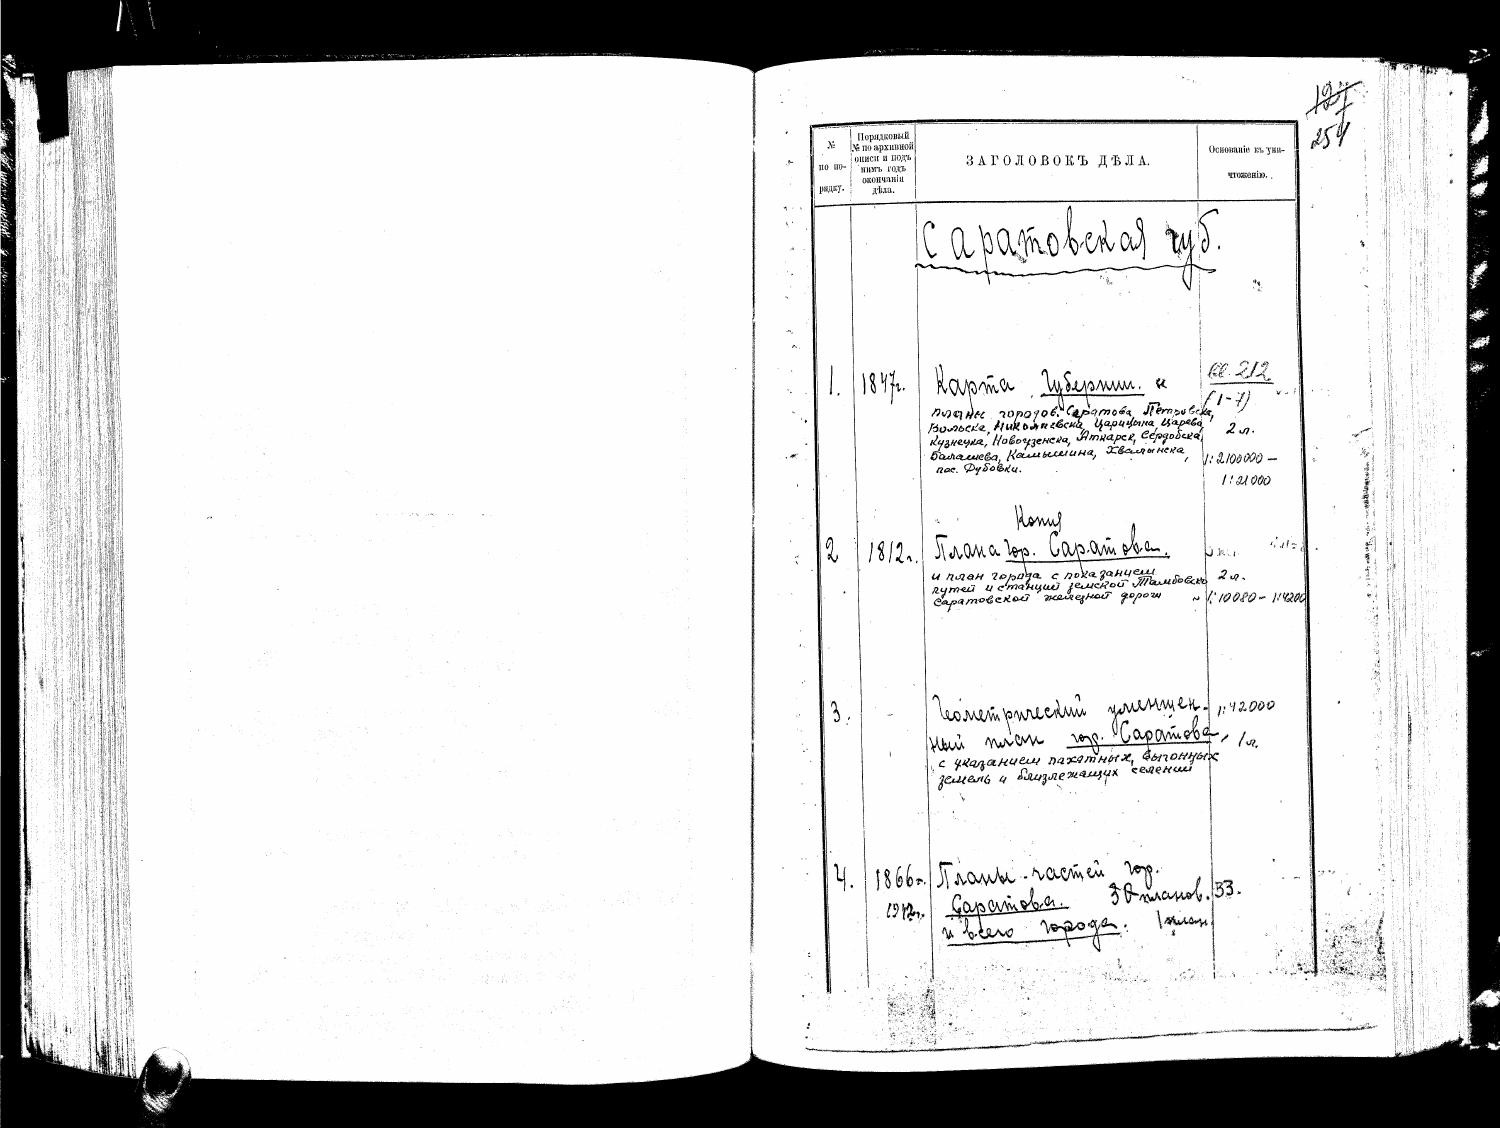 127
254
№
по по-
рядку.
Порядковый
№ по архивной
описи и подъ
нимъ годъ
окончанія
дѣла.
ЗАГОЛОВОКЪ ДѢЛА.
Основаніе къ уни-
чтоженію.
Саратовская губ.
1. 1847г. Карта Губернии и
планы городов: Саратова, Петровска,
Вольска, Николаевска, Царицына, Царева,
Кузнецка, Новоузенска, Аткарск, Сердобска,
Балашева, Камышина, Хвалынска,
пос. Дубовки.
212
(1-7)
2 л.
1:2100000 –
1:21000
Копия
2 1812г. Плана гор. Саратова.
и план города с показанием
путей и станций земской Тамбовско
Саратовской железной дороги
2 л.
1:10080 – 1:4200
3. Геометрический уменшен-
ный план гор. Саратова,
с указанием пахатных, выгонных
земель и близлежащих селений
1:42000
1 л.
4. 1866г. Планы частей гор.
1912г. Саратова. планов. 33.
и всего города. 1 план